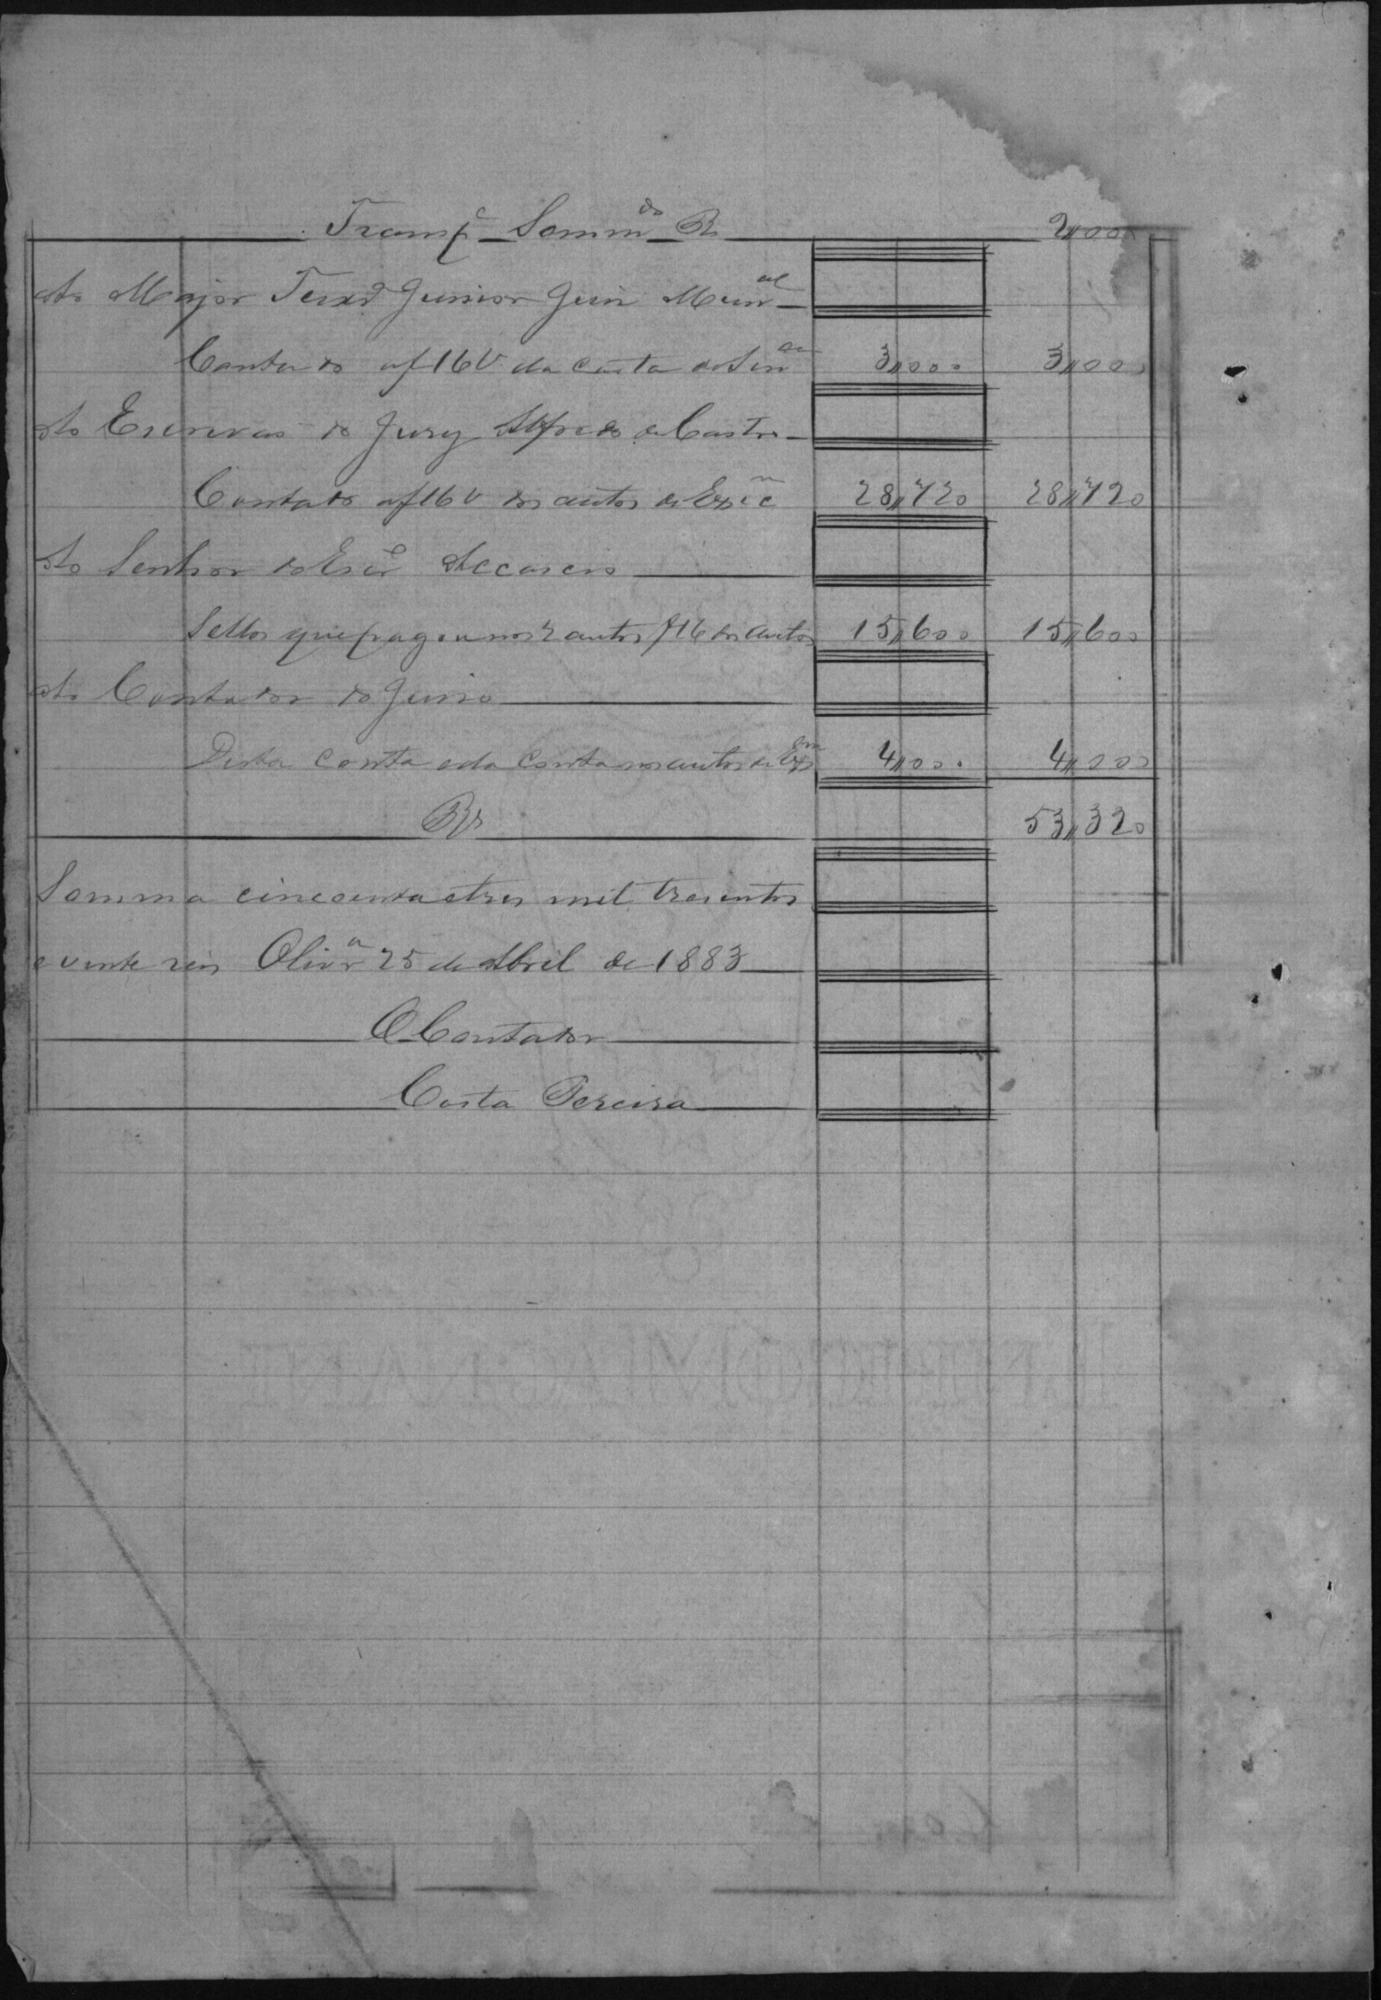 Transpe Sommdo R 2,,000
Ao Major Teixd Junior Juiz Munal
Contado af 16 V da carta de Senca 3,,000 3,,000
Ao Escrivão do Jury Alfredo de Castro
Contado af 16 V dos autos de 28,,720 28,,720
Ao Senhor do Accacio
Sellos que pagou nos autos f 16 dos autos 15,,600 15,,600
Ao Contador do Juizo
Desta conta e da conta nos autos de 4,,000 4,,000
Rs 53,,320
Somma cincoenta e tres mil tresentos
e vinte reis Olivra 25 de Abril de 1883
O Contador
Costa Pereira